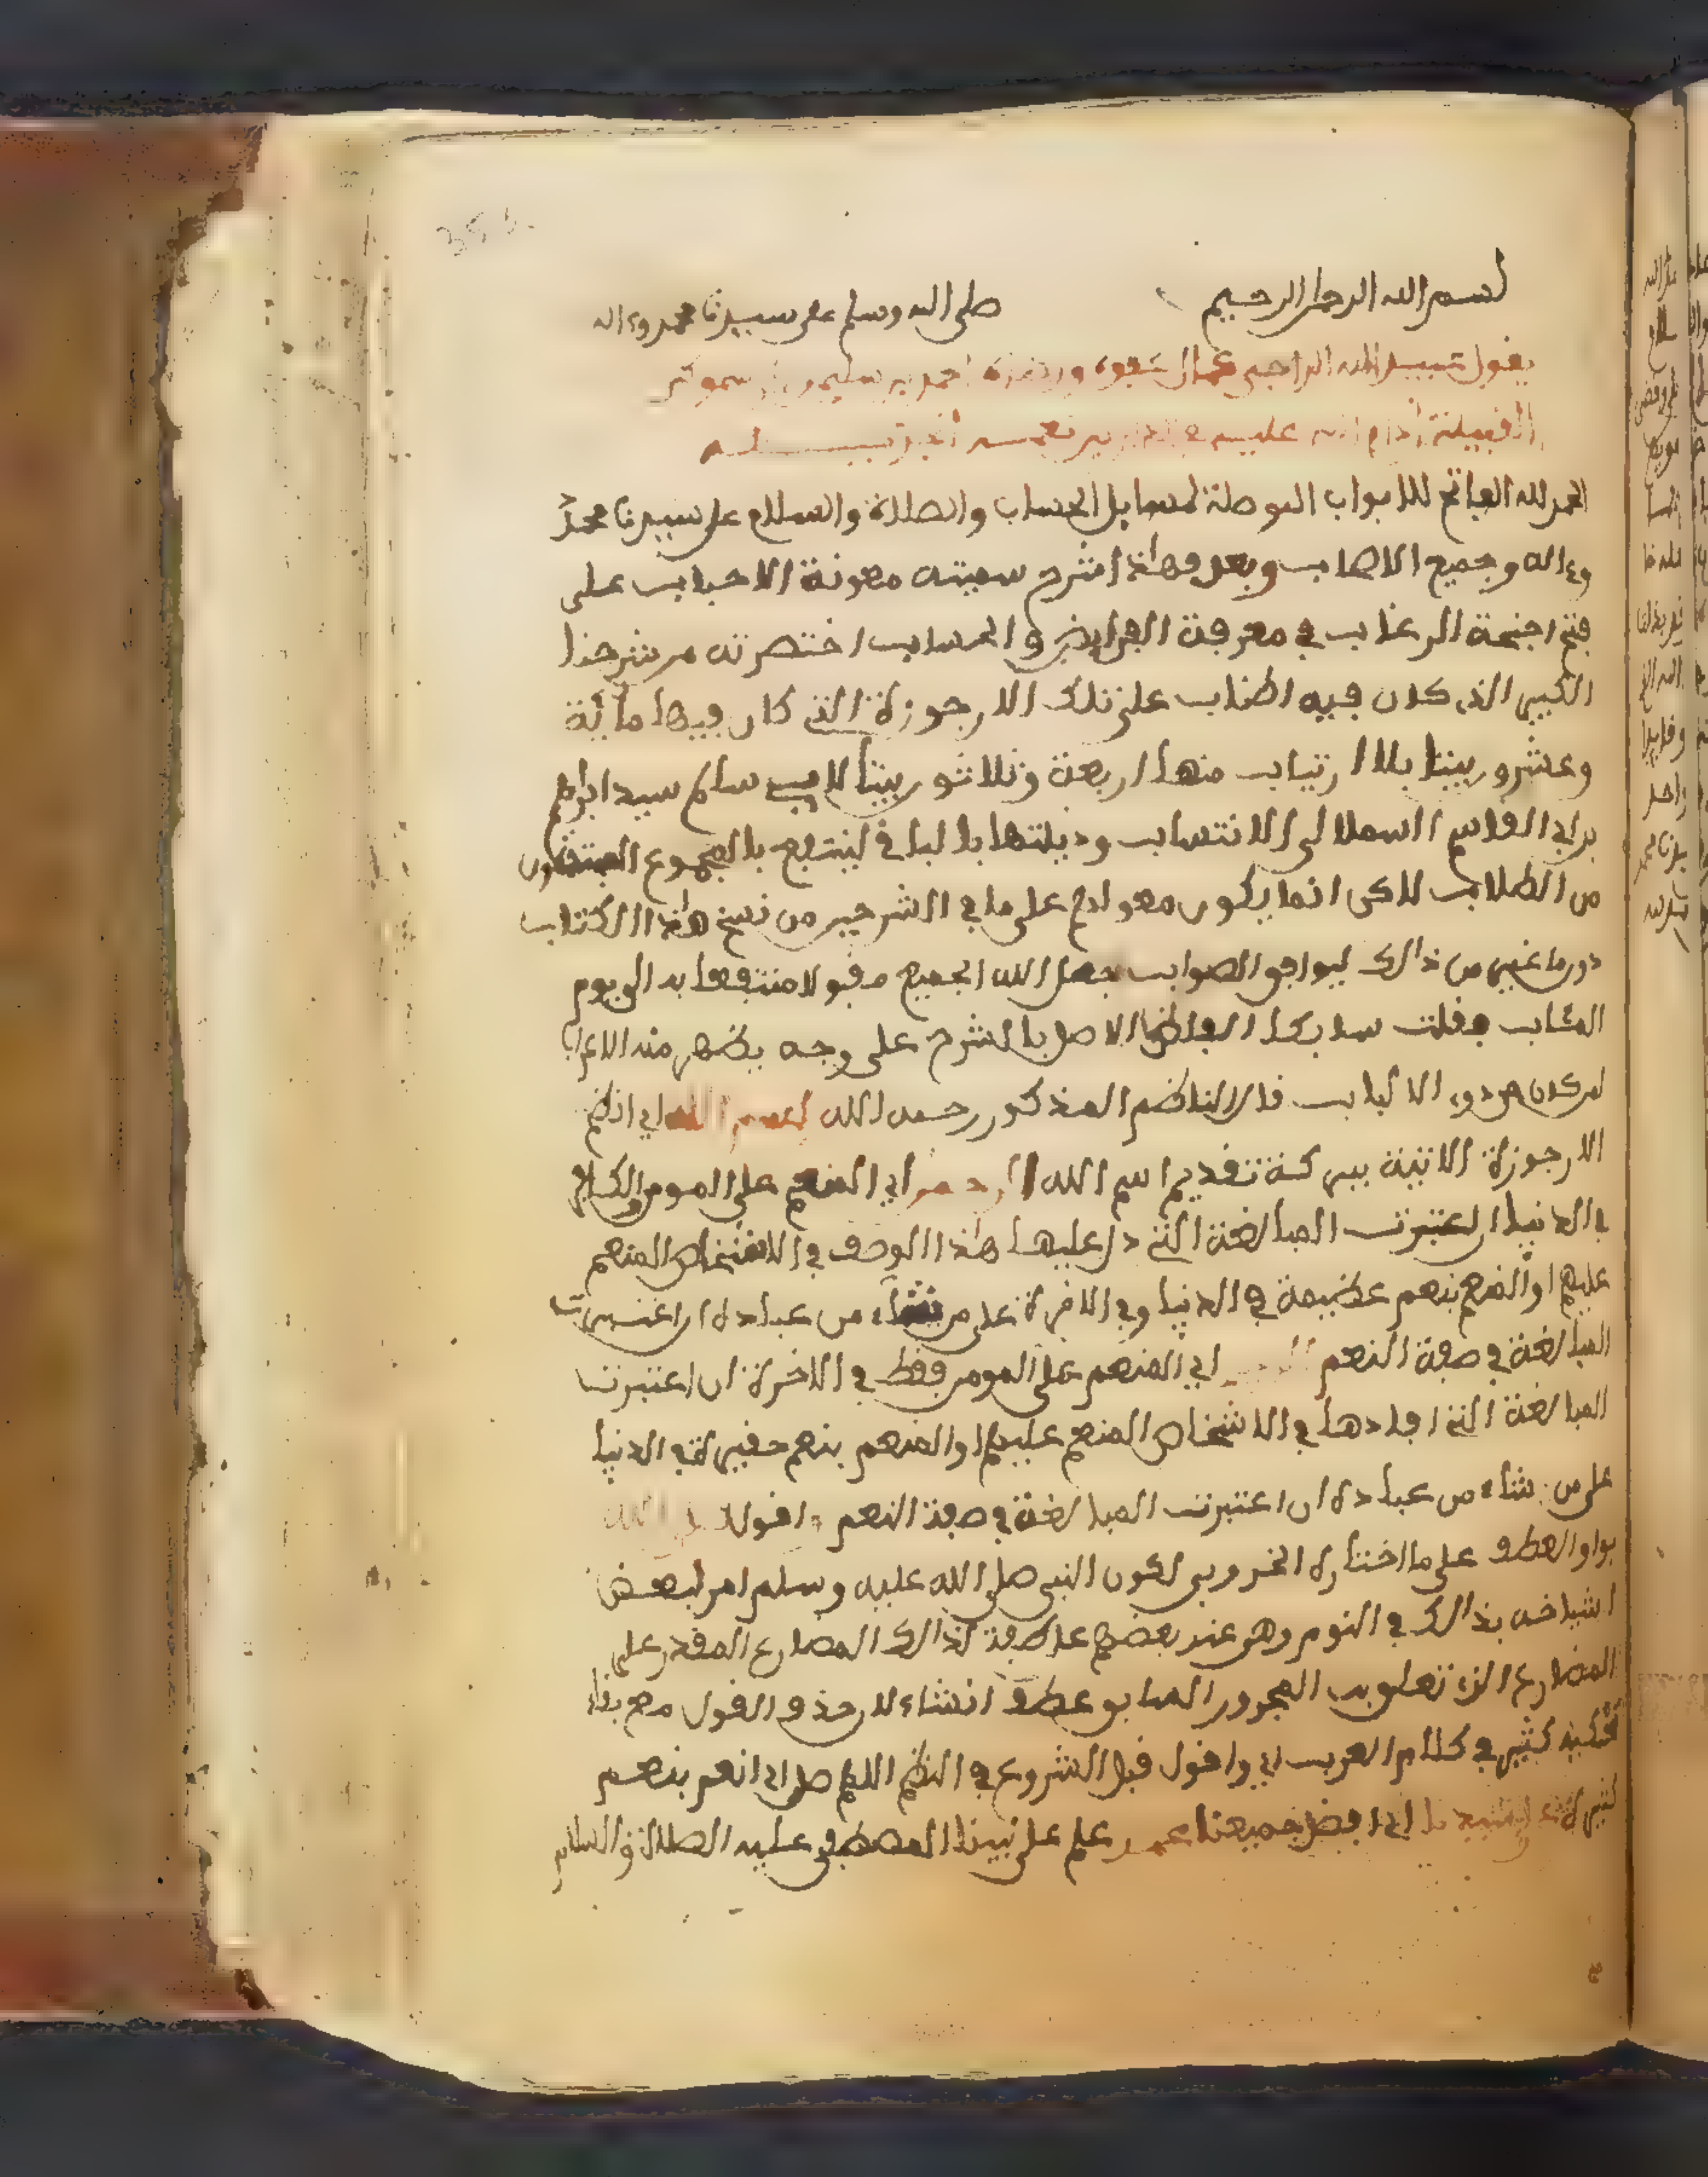 بسم الله الرحمن الرحيم صلى الله وسلم على سيدنا محمد وءاله
يقول عبيد الله الراجي عفوه احمد بن سليمان
القبيلة ادام الله عليهم
الحمد لله الفاتح للابواب الموصلة لمسايل الحساب والصلاة والسلام على سيدنا محمد
وءاله وجميع الاصحاب وبعد فهاذا شرح سميته معونة الاحباب على
فتح اجنحة الرغاب في معرفة الفرايض والحساب اختصرته من شرحنا
الكبير الذي كان فيه اطناب على تلك الارجوزة التي كان فيها مائة
وعشرون بيتا بلا ارتياب منها اربعة وثلاثون بيتا لابي سالم سيد ابراهيم
بن ابي القاسم السملالي الانتساب وذيلتها بالباقي لينتفع بالمجموع
من الطلاب لاكن انما يكون معولاهم على ما في الشرحين من نسخ هاذا الكتاب
دون ما غيره من ذالك ليوافق الصواب جعل الله الجميع مقبولا منتفعا به الى يوم
المئاب فقلت سابكا الفاظ الاصل بالشرح على وجه يظهر منه الاعراب
لمن كان من ذوي الالباب قال الناظم المذكور رحمه الله بسم الله اي انظم
الارجوزة الاتية ببركة تقديم اسم الله الرحمن اي المنعم على المومن والكافر
في الدنيا ان اعتبرت المبالغة التي دل عليها هاذا الوصف في الاشخاص المنعم
عليهم او المنعم بنعم عظيمة في الدنيا وفي الاخرة على من شاء من عباده ان اعتبرت
المبالغة في صفة النعم اي المنعم على المومن فقط في الاخرة ان اعتبرت
المبالغة التي افادها في الاشخاص المنعم عليهم او المنعم بنعم حقيرة في الدنيا
على من شاء من عباده ان اعتبرت المبالغة في صفة النعم واقول
بواو العطف على ما اختاره الخروبي لكون النبي صلى الله عليه وسلم امر لبعض
اشياخه بذالك في النوم وهي عند بعضهم عاطفة لذالك المضارع المقدر على
المضارع الذي تعلق به المجرور السابق عطف انشاء لان حذف القول مع بقاء
محكيه كثير في كلام العرب اي واقول قبل الشروع في النظم اللهم صل اي انعم بنعم
كثيرة على سيدنا اي افضل جميعنا محمد علم على نبينا المصطفى عليه الصلاة والسلام